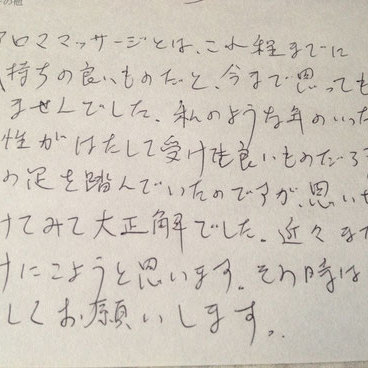 の他
アロママッサージとは、これ程までに
持ちの良いものだと、今まで思っても
ませんでした。私のような年のいった
性がはたして受けても良いものだろう
の足を踏んでいたのですが、思い
けてみて大正解でした。近々また
けにこようと思います。その時は
しくお願いします。